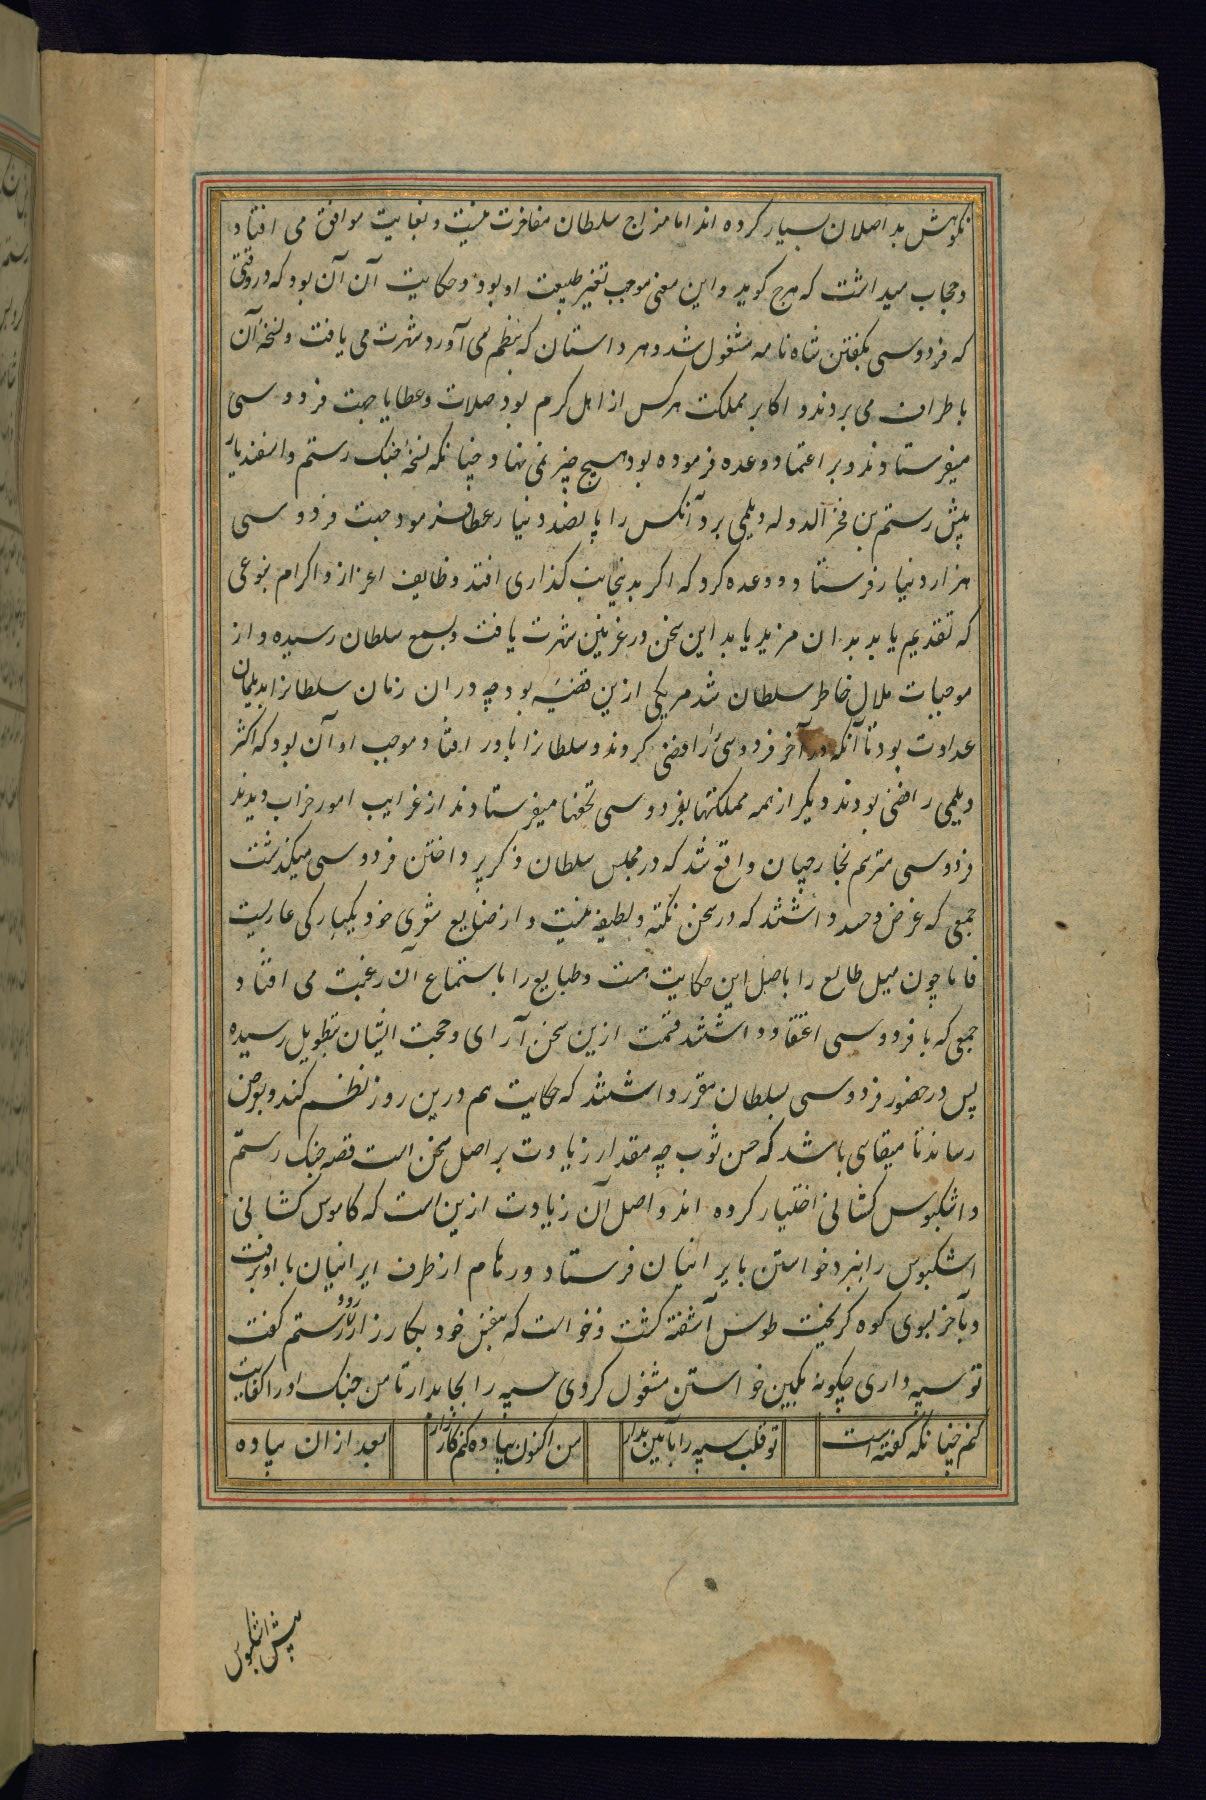 نکوهش بد اصلان بسیار کرده اند اما مزاج سلطان مفاخرت و بغایت موافق می افتاد
و حجاب میداشت که هرچ کوید و این معنی موجب تغیر طبیعت او بود و حکایت آن آن بود که در وقتی
که فردوسی بکفتن شاه نامه مشغول شد و هر داستان که بنظم می آورد شهرت می یافت و نسخه آن
باطراف می بردند و اکابر مملکت هرکس از اهل کرم بود صلات و عطایا جهت فردوسی
میفرستادند و بر اعتماد وعده فرموده بود هیچ چیز نمی نهاد چنانکه نسخهٔ جنک رستم و اسفندیار
پیش رستم بن فخر الدوله دیلمی برد آنکس را پانصد دینار عطا فرمود جهت فردوسی
هزار دینار فرستاد و وعده کرد که اکر بدینجانب کذاری افتد وظایف اعزاز و اکرام بنوعی
که تقدیم یابد بدان مزید یابد این سخن در غزنین شهرت یافت و بسمع سلطان رسیده و از
موجبات ملال خاطر سلطان شد مر یکی ازین قضیه بود چه در ان زمان سلطانرا بدیلمان
عداوت بود تا آنکه در آخر فردوسی را رافضی کردند و سلطانرا باور افتاد و موجب او آن بود که اکثر
دیلمی رافضی بودند دیکر از همه مملکتها بفردوسی تحفها میفرستادند از غرایب امور خراب دیدند
فردوسی مترنم بخارجیان واقع شد که در مجلس سلطان ذکر پرداختن فردوسی میکذشت
جمعی که غرض و حسد داشتند که در سخن نکته و لطیفه نیست و از صنایع شعری خود یکبارکی عاریست
فاما چون میل طالع را باصل این حکایت هست و طبایع را باستماع آن رغبت می افتاد و
جمعی که با فردوسی اعتقاد داشتند قیمت ازین سخن آرای و حجت ایشان بتطویل رسیده
پس در حضور فردوسی بسلطان مقرر داشتند که حکایت هم درین روز نظم کند و بعرض
رساند تا میقاسی باشد که حسن ثوب چه مقدار زیادت بر اصل سخن است قصه جنک رستم
و اشکبوس کشانی اختیار کرده اند و اصل آن زیادت ازین است که کاموس کشانی
اشکبوس را نبرد خواستن بایرانیان فرستاد و رهام از طرف ایرانیان با او برفت
و بآخر بسوی کوه کریخت طوس آشفته کشت و خواست که بنفس خود بکارزار رود رستم کفت
تو سپه داری چکونه بکین خواستن مشغول کردی سپه را بجا بدار تا من جنک او را کفایت
کنم چنانکه کفته است
تو قلب سپه را بآیین بدار
من اکنون پیاده کنم کارزار
بعد از ان پیاده
پیش اشکبوس